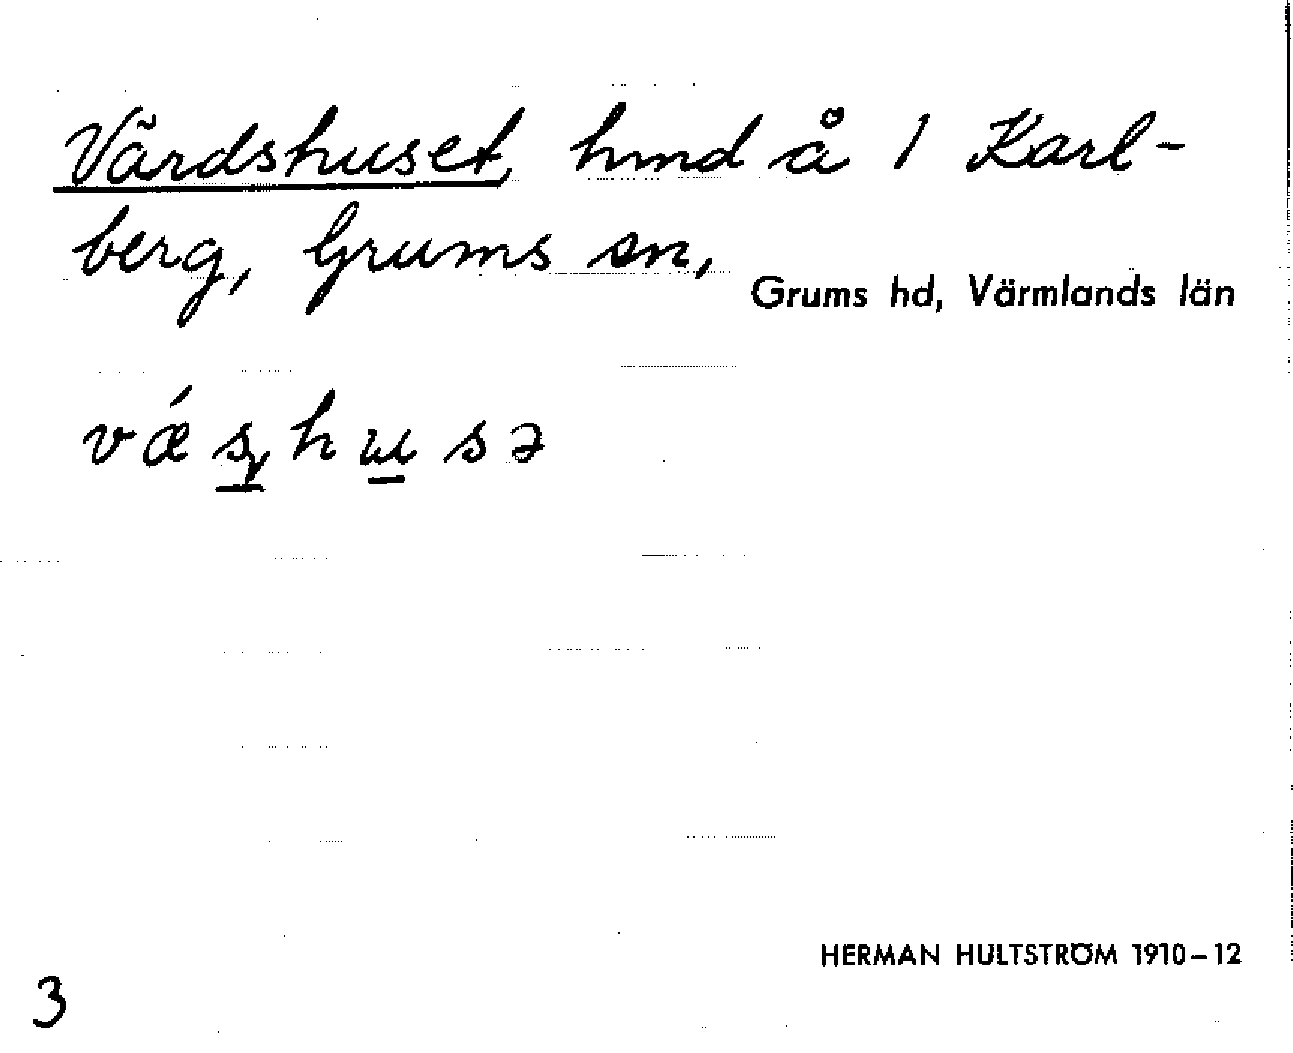 Värdshuset, hmd å 1 Karl-
berg, Grums sn,
Grums hd, Värmlands län
vǽs̱hu̱sə
HERMAN HULTSTRÖM 1910–12
3